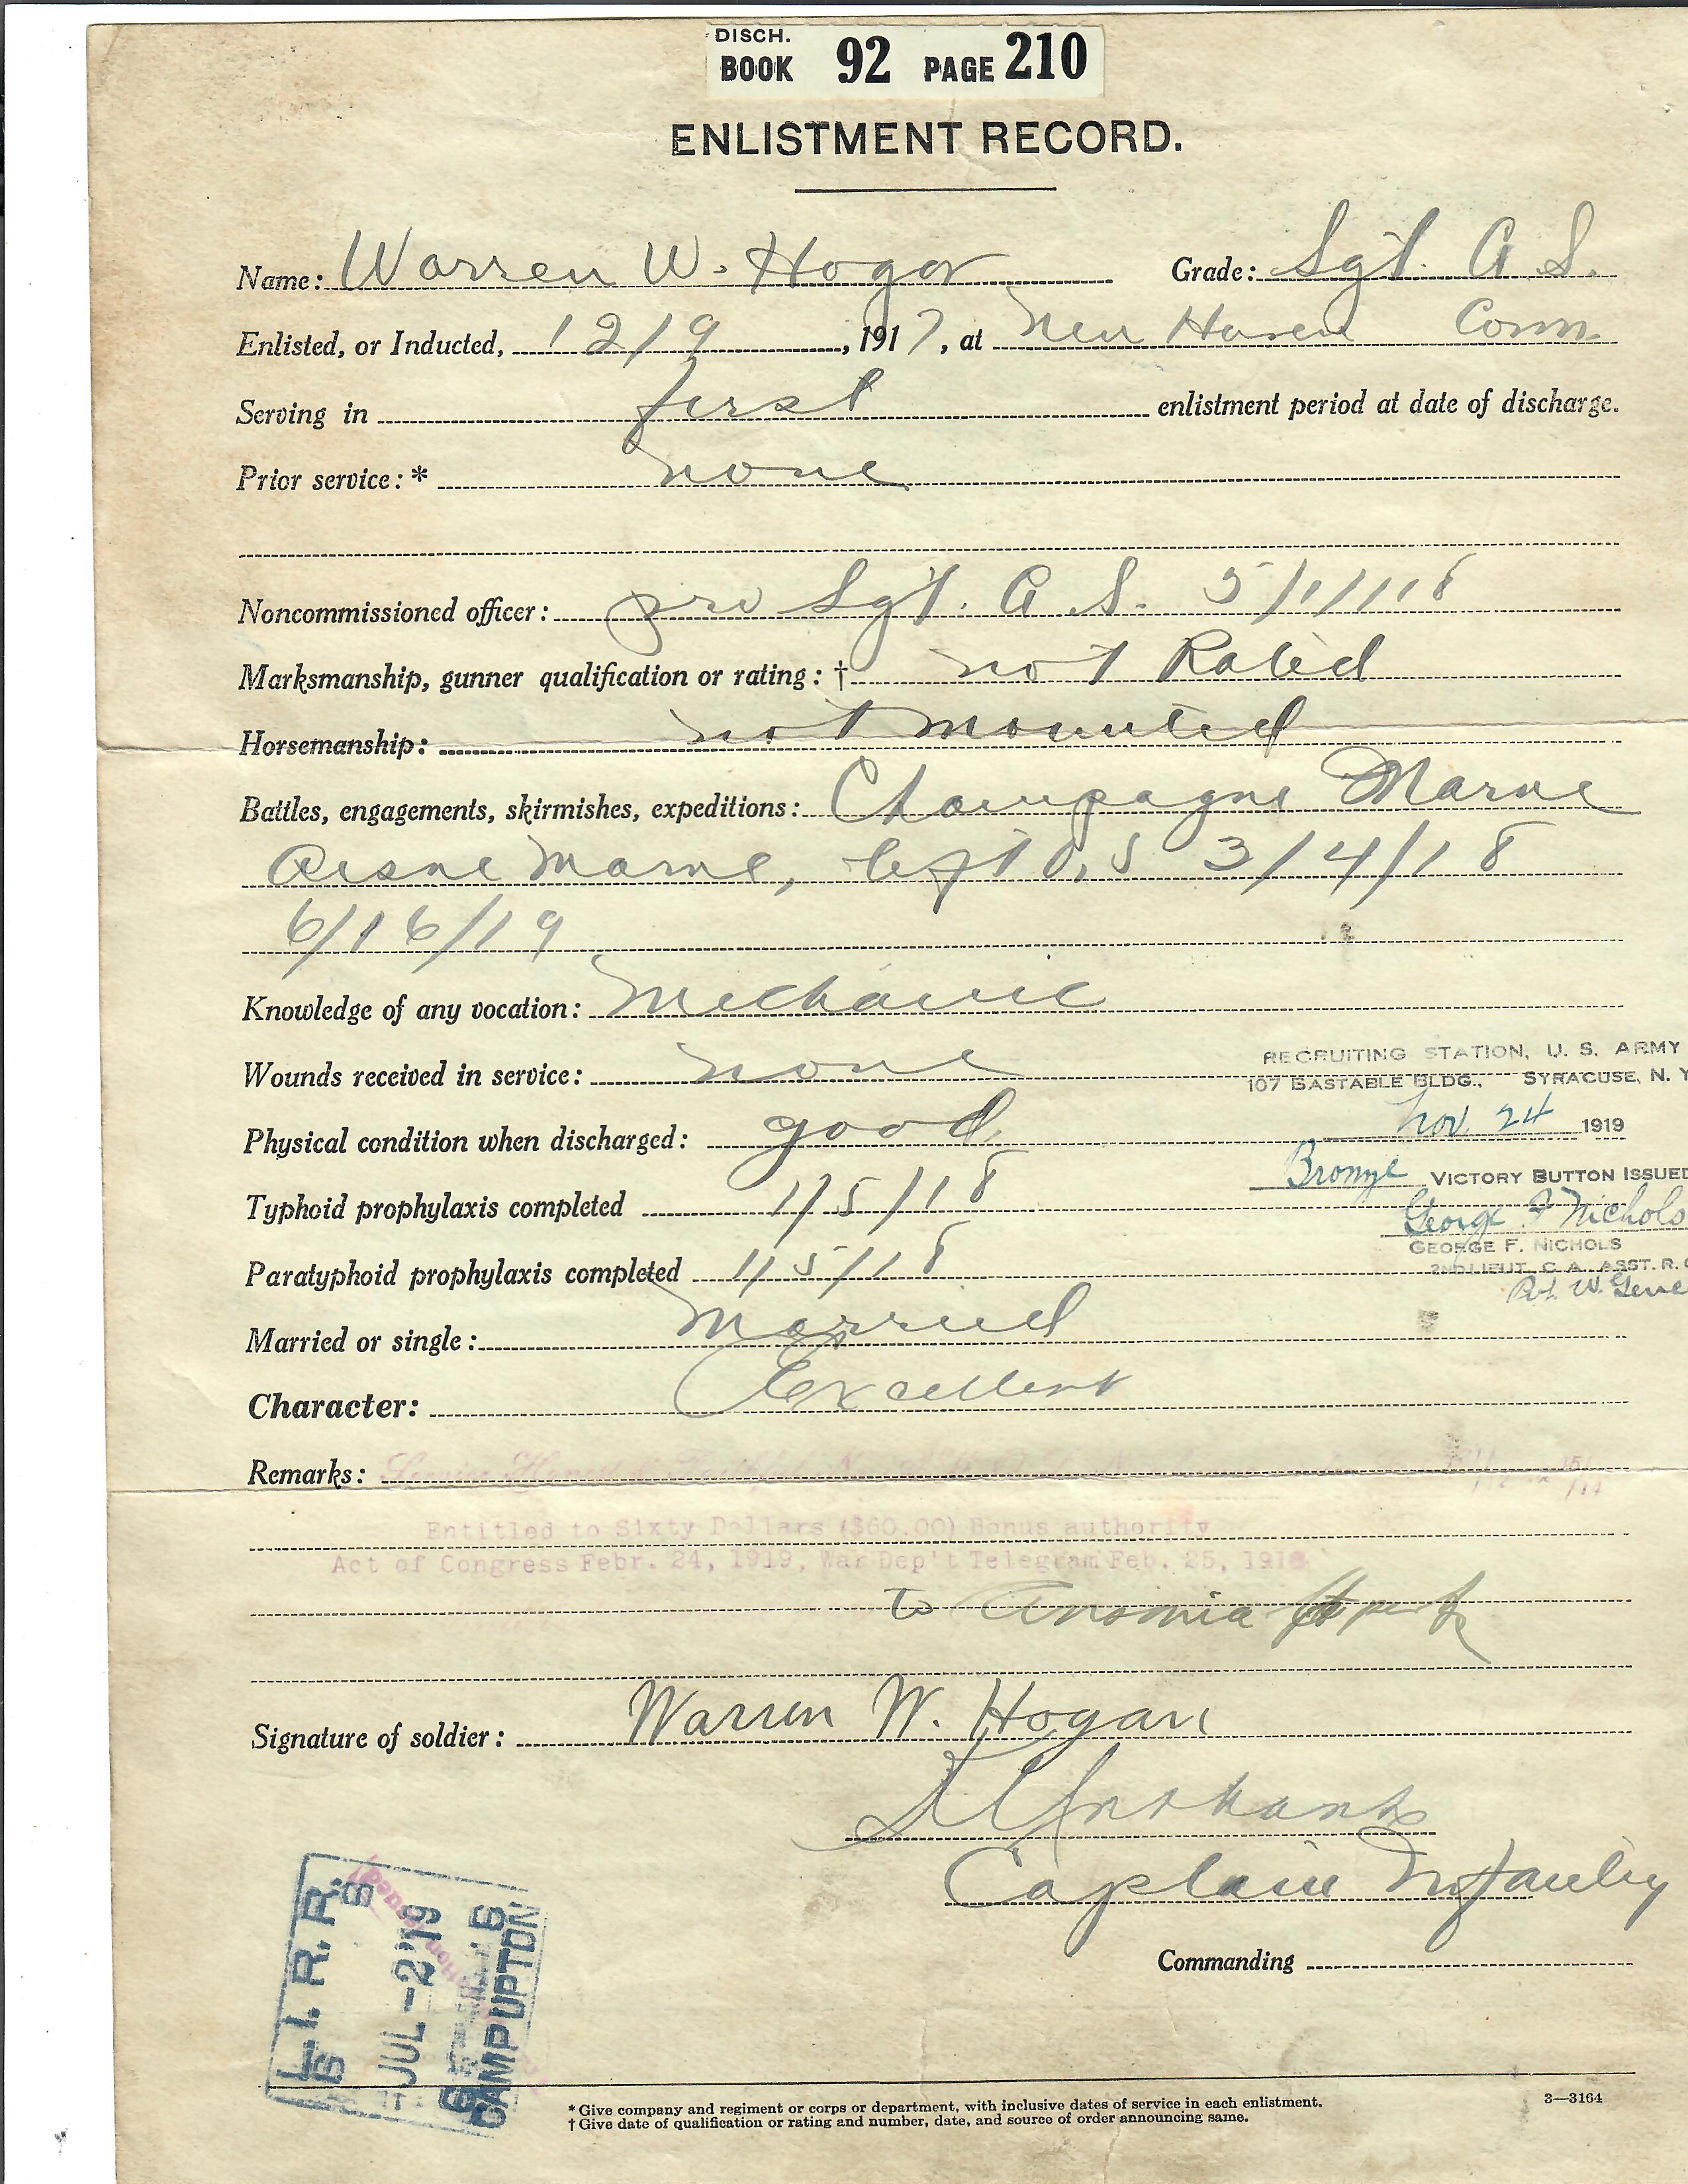 DISCH.
BOOK 92 PAGE 210
ENLISTMENT RECORD.
Name: Warren W. Hogan Grade: Sgt. A S.
Enlisted, or Inducted, 12/9, 1917, at New Haven Conn.
Serving in first enlistment period at date of discharge.
Prior service:* none
Noncommissioned officer: Sgt. A. S. 5/1/18
Marksmanship, gunner qualification or rating:† not Rated
Horsemanship: not mounted
Battles, engagements, skirmishes, expeditions: Champagne Marne
Aisne Marne, left U.S 3/4/18
6/16/19
Knowledge of any vocation: Mechanic
Wounds received in service: none
RECRUITING STATION, U. S. ARMY
107 BASTABLE BLDG., SYRACUSE, N. Y
Physical condition when discharged: good.
Nov. 24 1919
Bronze VICTORY BUTTON ISSUED
Typhoid prophylaxis completed 1/5/18
George F Nichols
GEORGE F. NICHOLS
Paratyphoid prophylaxis completed 1/5/18
2ND LIEUT. C. A. ASST. R.
Married or single: Married
Character: Excellent
Remarks:
Entitled to Sixty Dollars ($60.00) Bonus authority
Act of Congress Febr. 24, 1919, War Dep't Telegram Feb. 25, 1918
to Ansonia
Signature of soldier: Warren W. Hogan
Captain Infantry
Commanding
L. I. R. R.
JUL -2 '19
CAMP UPTON
* Give company and regiment or corps or department, with inclusive dates of service in each enlistment.
† Give date of qualification or rating and number, date, and source of order announcing same.
3—3164